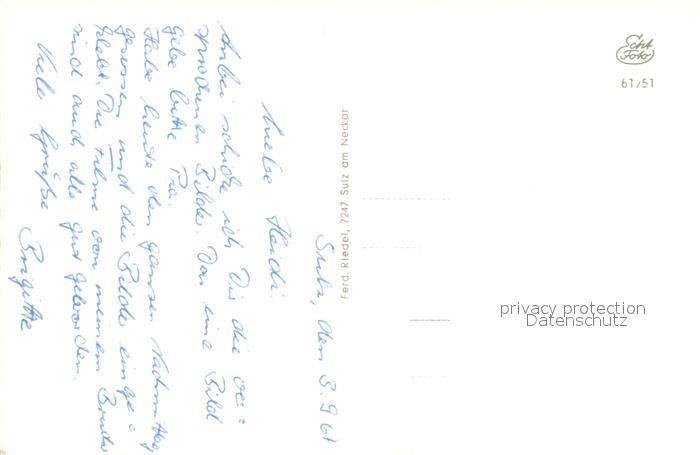 Sulz, den 3.9.61
Liebe Heidi!
Anbei schicke ich Dir die ver=
sprochenen Bilder. Das eine Bild
gebe bitte
Habe heute den ganzen Nachmittag
gesessen und die Bilder einge=
klebt. Die Filme von meinem Bruder
sind auch alle gut geworden.
Viele Grüße
Brigitte
Ferd. Riedel, 7247 Sulz am Neckar
Echt
Foto
61/51
privacy protection
Datenschutz